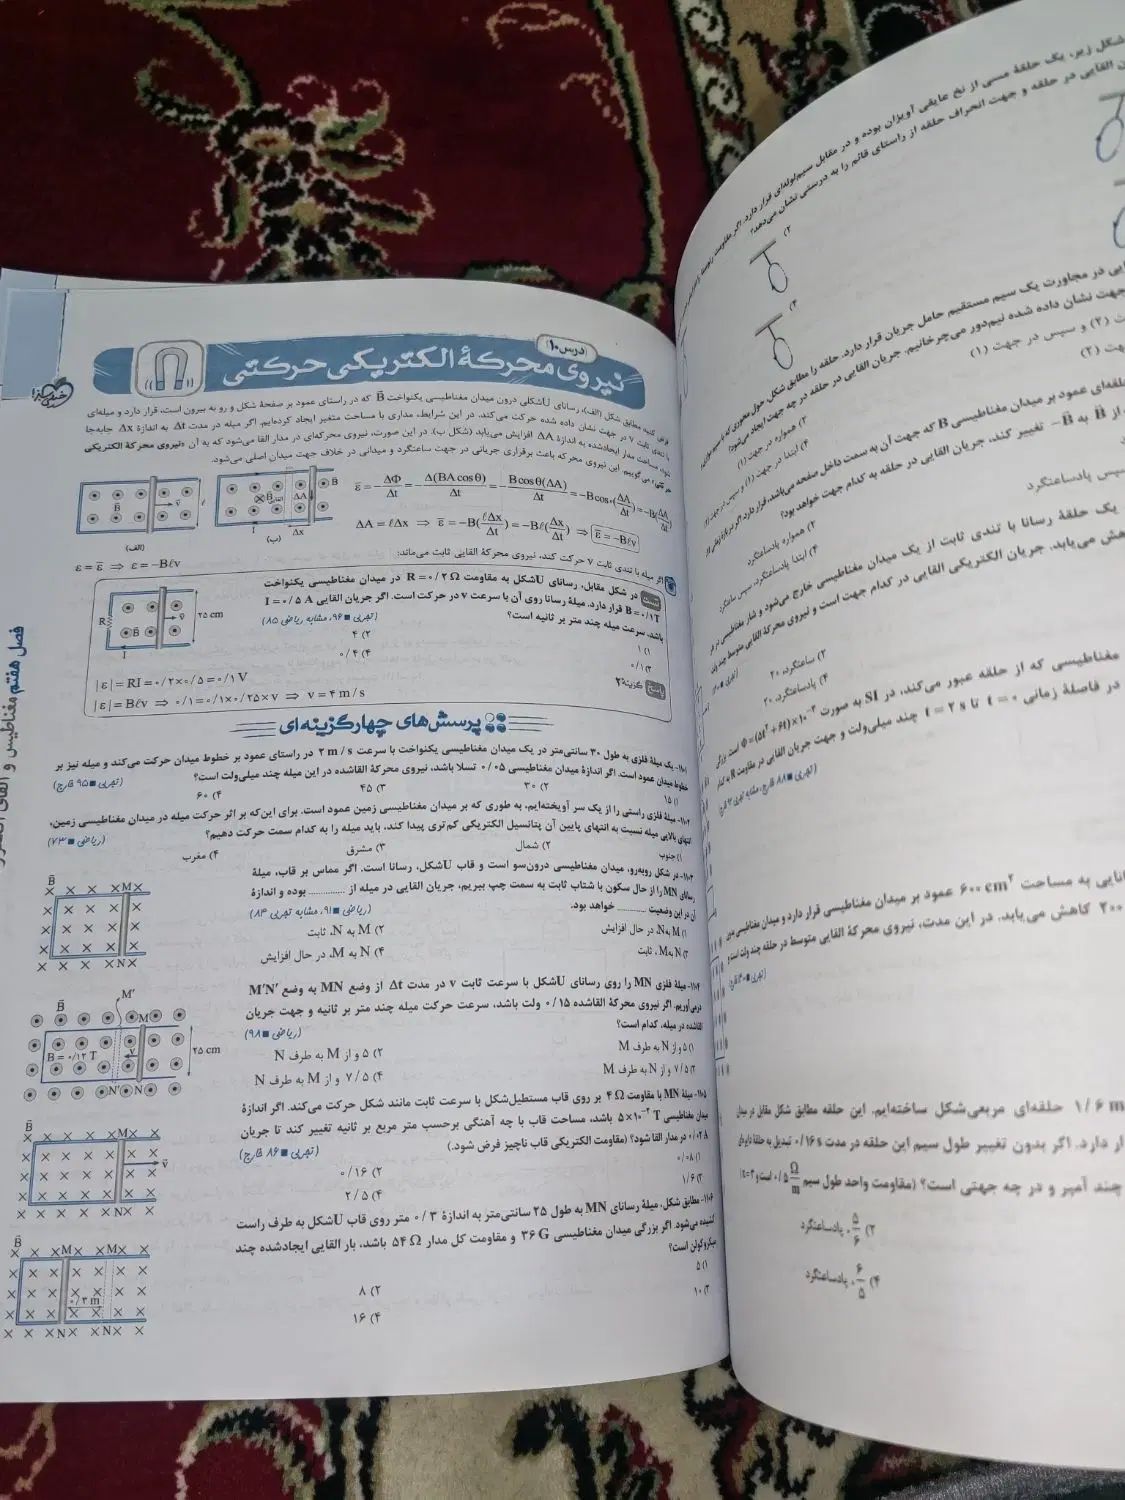 درس ۱۰
نیروی محرکهٔ الکتریکی حرکتی
فرض کنید مطابق شکل (الف)، رسانای Uشکلی درون میدان مغناطیسی یکنواخت B که در راستای عمود بر صفحهٔ شکل و رو به بیرون است، قرار دارد و میله‌ای
با تندی ثابت v در جهت نشان داده شده حرکت می‌کند. در این شرایط، مداری با مساحت متغیر ایجاد کرده‌ایم. اگر میله در مدت Δt به اندازهٔ Δx جابه‌جا
شود، مساحت مدار ایجادشده به اندازهٔ ΔA افزایش می‌یابد (شکل ب). در این صورت، نیروی محرکه‌ای در مدار القا می‌شود که به آن «نیروی محرکهٔ الکتریکی
حرکتی» می‌گوییم. این نیروی محرکه باعث برقراری جریانی در جهت ساعتگرد و میدانی در خلاف جهت میدان اصلی می‌شود.
ε̄ = −ΔΦ/Δt = −Δ(BA cosθ)/Δt = −B cosθ(ΔA)/Δt = −B cos۰(ΔA/Δt) = −B(ΔA/Δt)
ΔA = ℓΔx ⇒ ε̄ = −B(ℓΔx/Δt) = −Bℓ(Δx/Δt) ⇒ ε̄ = −Bℓv
(الف)
(ب)
اگر میله با تندی ثابت v حرکت کند، نیروی محرکهٔ القایی ثابت می‌ماند:
ε = ε̄ ⇒ ε = −Bℓv
تست در شکل مقابل، رسانای Uشکل به مقاومت R = ۰/۲ Ω در میدان مغناطیسی یکنواخت
B = ۰/۱ T قرار دارد. میلهٔ رسانا روی آن با سرعت v در حرکت است. اگر جریان القایی I = ۰/۵ A
باشد، سرعت میله چند متر بر ثانیه است؟ (تجربی ۹۶، مشابه ریاضی ۸۵)
۱) ۱
۲) ۴
۳) ۰/۱
۴) ۰/۴
R
B
v
۲۵ cm
I
پاسخ گزینهٔ ۲
|ε| = RI = ۰/۲×۰/۵ = ۰/۱ V
|ε| = Bℓv ⇒ ۰/۱ = ۰/۱×۰/۲۵×v ⇒ v = ۴ m/s
پرسش‌های چهارگزینه‌ای
۱۱۰۱- یک میلهٔ فلزی به طول ۳۰ سانتی‌متر در یک میدان مغناطیسی یکنواخت با سرعت ۲ m/s در راستای عمود بر خطوط میدان حرکت می‌کند و میله نیز بر
خطوط میدان عمود است. اگر اندازهٔ میدان مغناطیسی ۰/۰۵ تسلا باشد، نیروی محرکهٔ القاشده در این میله چند میلی‌ولت است؟ (تجربی ۹۵ خارج)
۱) ۱۵ ۲) ۳۰ ۳) ۴۵ ۴) ۶۰
۱۱۰۲- میلهٔ فلزی راستی را از یک سر آویخته‌ایم، به طوری که بر میدان مغناطیسی زمین عمود است. برای این‌که بر اثر حرکت میله در میدان مغناطیسی زمین،
انتهای بالایی میله نسبت به انتهای پایین آن پتانسیل الکتریکی کم‌تری پیدا کند، باید میله را به کدام سمت حرکت دهیم؟ (ریاضی ۷۳)
۱) جنوب ۲) شمال ۳) مشرق ۴) مغرب
۱۱۰۳- در شکل روبه‌رو، میدان مغناطیسی درون‌سو است و قاب Uشکل، رسانا است. اگر مماس بر قاب، میلهٔ
رسانای MN را از حال سکون با شتاب ثابت به سمت چپ ببریم، جریان القایی در میله از .......... بوده و اندازهٔ
آن در این وضعیت .......... خواهد بود. (ریاضی ۹۱، مشابه تجربی ۸۴)
۱) M به N، در حال افزایش
۲) M به N، ثابت
۳) N به M، ثابت
۴) N به M، در حال افزایش
۱۱۰۴- میلهٔ فلزی MN را روی رسانای Uشکل با سرعت ثابت v در مدت Δt از وضع MN به وضع M′N′
درمی‌آوریم. اگر نیروی محرکهٔ القاشده ۰/۱۵ ولت باشد، سرعت حرکت میله چند متر بر ثانیه و جهت جریان
القاشده در میله، کدام است؟ (ریاضی ۹۸)
۱) ۵ و از N به طرف M
۲) ۵ و از M به طرف N
۳) ۷/۵ و از N به طرف M
۴) ۷/۵ و از M به طرف N
B = ۰/۱۲ T
۲۵ cm
۱۱۰۵- میلهٔ MN با مقاومت ۴ Ω بر روی قاب مستطیل‌شکل با سرعت ثابت مانند شکل حرکت می‌کند. اگر اندازهٔ
میدان مغناطیسی ۵×۱۰⁻² T باشد، مساحت قاب با چه آهنگی برحسب متر مربع بر ثانیه تغییر کند تا جریان
۰/۰۲ A در مدار القا شود؟ (مقاومت الکتریکی قاب ناچیز فرض شود.) (تجربی ۸۶ خارج)
۱) ۰/۰۸
۲) ۰/۱۶
۳) ۱/۶
۴) ۲/۵
۱۱۰۶- مطابق شکل، میلهٔ رسانای MN به طول ۲۵ سانتی‌متر به اندازهٔ ۰/۳ متر روی قاب Uشکل به طرف راست
کشیده می‌شود. اگر بزرگی میدان مغناطیسی ۳۶ G و مقاومت کل مدار ۵۴ Ω باشد، بار القایی ایجادشده چند
میکروکولن است؟
۱) ۵
۲) ۸
۳) ۱۰
۴) ۱۶
۰/۳ m
فصل هفتم مغناطیس و القای
شکل زیر، یک حلقهٔ مسی از نخ عایقی آویزان بوده و در مقابل سیم‌لوله‌ای قرار دارد.
القایی در حلقه و جهت انحراف حلقه از راستای قائم را به درستی نشان می‌دهد؟
۲)
در مجاورت یک سیم مستقیم حامل جریان قرار دارد. حلقه را مطابق شکل، حول محوری که
جهت نشان داده شده نیم‌دور می‌چرخانیم. جریان القایی در حلقه در چه جهت ایجاد می‌شود؟
(۲) و سپس در جهت (۱)
حلقه‌ای عمود بر میدان مغناطیسی B که جهت آن به سمت داخل صفحه می‌باشد، قرار دارد.
از B به −B تغییر کند، جریان القایی در حلقه به کدام جهت خواهد بود؟
۲) همواره پادساعتگرد
سپس پادساعتگرد
۴) ابتدا پادساعتگرد، سپس ساعتگرد
یک حلقهٔ رسانا با تندی ثابت از یک میدان مغناطیسی خارج می‌شود و شار مغناطیسی
می‌یابد. جریان الکتریکی القایی در کدام جهت است و نیروی محرکهٔ القایی متوسط چند ولت
۲) ساعتگرد، ۲۰
۴) پادساعتگرد، ۲۰
مغناطیسی که از حلقه عبور می‌کند، در SI به صورت Φ = (۵t² + ۶t)×۱۰⁻³ است.
در فاصلهٔ زمانی t = ۰ تا t = ۲ s چند میلی‌ولت و جهت جریان القایی در مقاومت R به کدام
به مساحت ۶۰۰ cm² عمود بر میدان مغناطیسی قرار دارد و میدان مغناطیسی
۲۰۰ کاهش می‌یابد. در این مدت، نیروی محرکهٔ القایی متوسط در حلقه چند ولت است و
۱/۶ m حلقه‌ای مربعی‌شکل ساخته‌ایم. این حلقه مطابق شکل مقابل در میدان
دارد. اگر بدون تغییر طول سیم این حلقه در مدت ۰/۱۶ s تبدیل به حلقهٔ دایره‌ای
چند آمپر و در چه جهتی است؟ (مقاومت واحد طول سیم ۰/۵ Ω/m است و π = ۳)
۲) ۵/۶، پادساعتگرد
۴) ۶/۵، پادساعتگرد